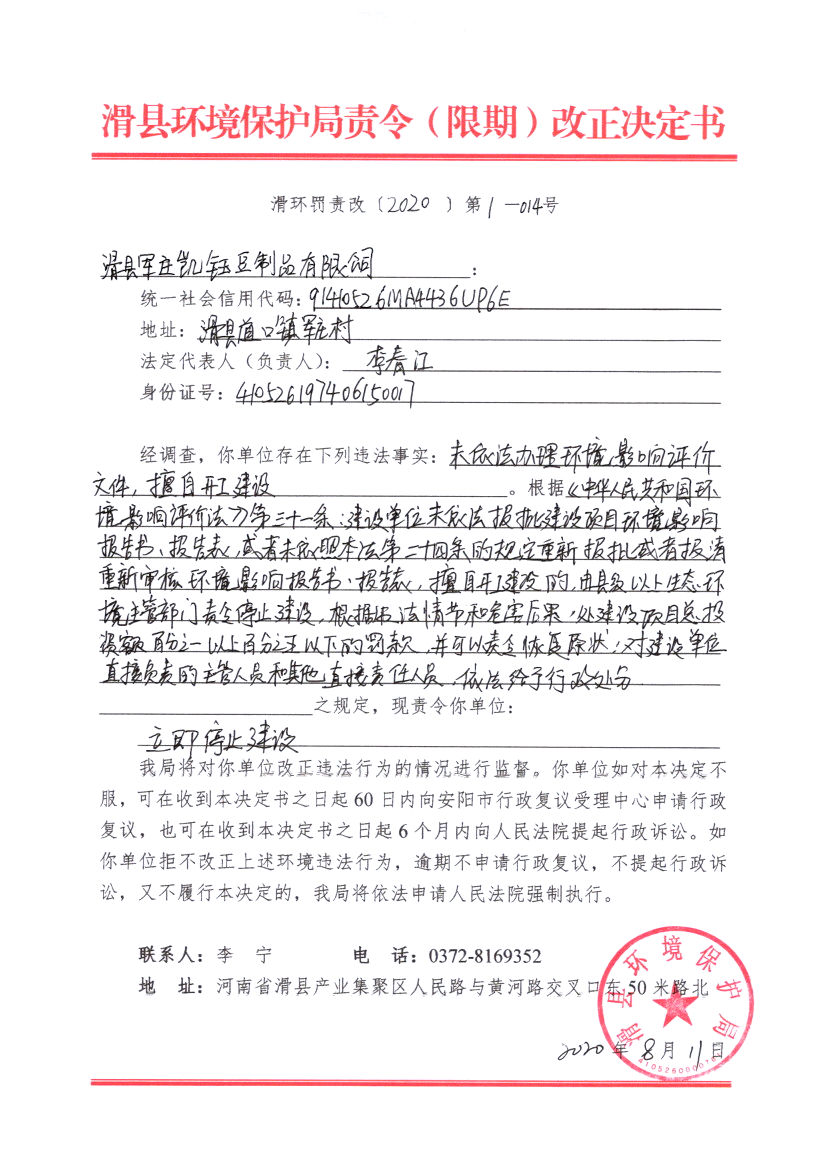 滑县环境保护局责令（限期）改正决定书
滑环罚责改〔2020 〕第1—014号
滑县军庄凯钰豆制品有限公司：
统一社会信用代码：91410526MA4436UP6E
地址：滑县道口镇军庄村
法定代表人（负责人）：李春江
身份证号：410526197406150017
经调查，你单位存在下列违法事实：未依法办理环境影响评价
文件，擅自开工建设。根据《中华人民共和国环
境影响评价法》第三十一条：建设单位未依法报批建设项目环境影响
报告书、报告表，或者未依照本法第二十四条的规定重新报批或者报请
重新审核环境影响报告书、报告表，擅自开工建设的，由县级以上生态环
境主管部门责令停止建设，根据违法情节和危害后果，处建设项目总投
资额百分之一以上百分之五以下的罚款，并可以责令恢复原状；对建设单位
直接负责的主管人员和其他直接责任人员，依法给予行政处分
之规定，现责令你单位：
立即停止建设
我局将对你单位改正违法行为的情况进行监督。你单位如对本决定不
服，可在收到本决定书之日起 60 日内向安阳市行政复议受理中心申请行政
复议，也可在收到本决定书之日起 6 个月内向人民法院提起行政诉讼。如
你单位拒不改正上述环境违法行为，逾期不申请行政复议，不提起行政诉
讼，又不履行本决定的，我局将依法申请人民法院强制执行。
联系人：李 宁 电 话：0372-8169352
地 址：河南省滑县产业集聚区人民路与黄河路交叉口东 50 米路北
滑县环境保护局
2020年8月11日